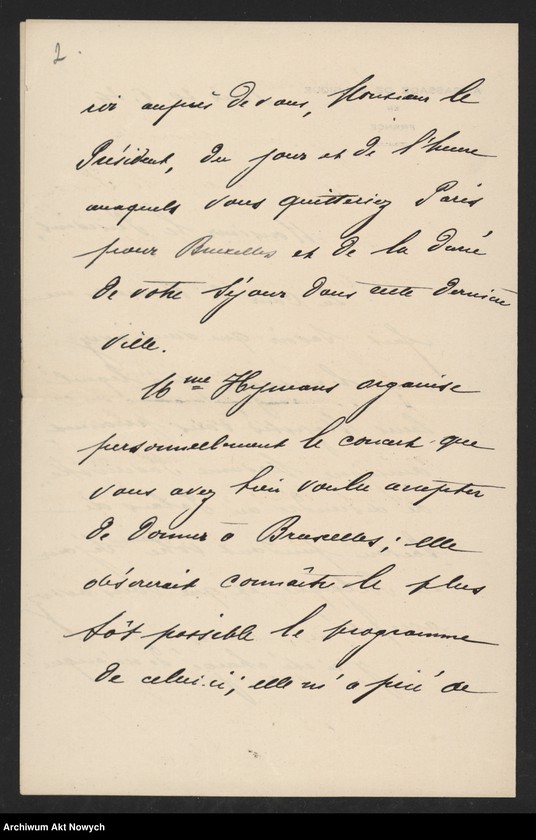 2.
rir auprès de vous, Monsieur le
Président, du jour et de l'heure
auxquels vous quitteriez Paris
pour Bruxelles et de la durée
de votre séjour dans cette dernière
ville.
Mme Hymans organise
personnellement le concert que
vous avez bien voulu accepter
de donner à Bruxelles ; elle
désirerait connaître le plus
tôt possible le programme
de celui-ci ; elle m'a prié de
Archiwum Akt Nowych